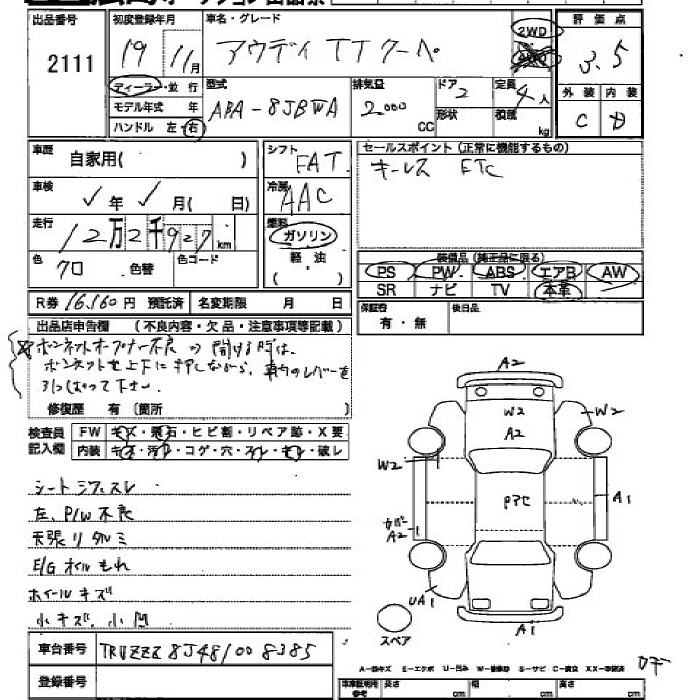 出品番号 初度登録年月 車名・グレード 評価点
2111 19 11月 アウディ TTクーペ 2WD 3.5
ディーラー・並行 型式 排気量 ドア 定員 外装 内装
モデル年式 年 ABA-8JBWA 2000 CC 2 4人 C D
ハンドル 左・右 形状 積載 kg
車歴 自家用( ) シフト FAT セールスポイント (正常に機能するもの)
車検 年 月( 日) 冷房 AAC キーレス ETC
走行 12万2千927km 燃料 ガソリン
軽油
( )
装備品 (純正品に限る)
色 クロ 色替 色コード PS PW ABS エアB AW
SR ナビ TV 本革
R券 16,160円 預託済 名変期限 月 日 保証書 有・無 後日品
出品店申告欄 (不良内容・欠品・注意事項等記載)
ボンネットオープナー不良の 開ける時は、
ボンネットを上下に押しながら、車内のレバーを
引っぱって下さい.
修復歴 有 (箇所
検査員 FW キズ・飛石・ヒビ割・リペア跡・X要
記入欄 内装 キズ・汚レ・コゲ・穴・スレ・キレ・破レ
シートシワスレ
左、P/W不良
天張りタルミ
E/Gオイルもれ
ホイールキズ
小キズ、小凹
A2
W2
A2
W2
W2
PアC
A1
カバー
A2
UA1
A1
スペア
車台番号 TRUZZZ8J481008385
登録番号
A-線キズ E-エクボ U-凹み W-補修跡 S-サビ C-腐食 XX-交換済
車庫証明用参考 長さ cm 幅 cm 高さ cm